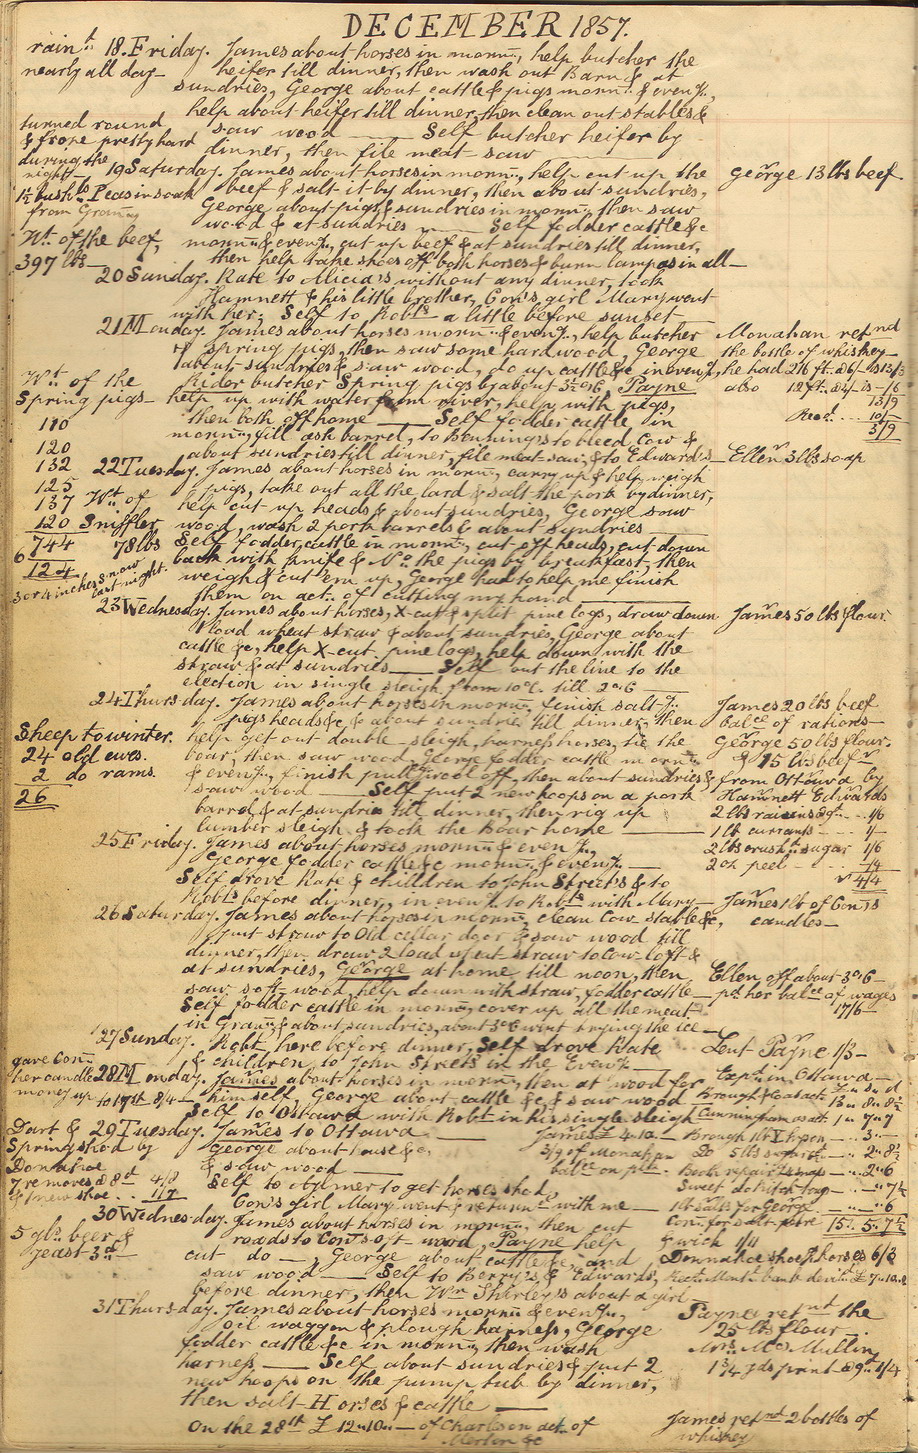 DECEMBER 1857.
rain.g
nearly all day-
18. Friday. James about horses in morng., help butcher the
heifer till dinner, then wash out Barn & at
sundries, George about cattle & pigs morng. & eveng.,
help about heifer till dinner, then clean out stables &
saw wood —— Self butcher heifer by
dinner, then file meat-saw ——
turned round
& froze pretty hard
during the
night-
19 Saturday. James about horses in morng., help cut up the
beef & salt it by dinner, then about sundries,
George about pigs & sundries in morng., then saw
wood & at sundries —— Self fodder cattle &c
morng. & eveng., cut up beef & at sundries till dinner,
then help take shoes off both horses & burn lampas in all-
George 13 lbs beef
1½ bushls. Peas in soak
from Grany.
Wt. of the beef,
397 lbs-
20 Sunday. Kate to Alicia's without any dinner, took
Hamnett & his little brother, Con's girl Mary went
with her, Self to Robts- a little before sunset-
21 Monday. James about horses morng. & eveng., help butcher
spring pigs, then saw some hard wood, George
about sundries & saw wood, do up cattle &c in eveng.,
Rider butcher Spring pigs by about 3 oc, Payne
help up with water from river, help with pigs,
then both off home —— Self fodder cattle in
morng., fill ash barrel, to Benning's to bleed Cow &
about sundries till dinner, file meat saw, & to Edward's-
Monahan retnd
the bottle of whiskey-
he had 216 ft. @ 6/- is 13/3
also 12 ft. @ 4/- is -/6
13/9
Recd. .... 10/-
3/9
Ellen 3 lbs soap
Wt. of the
Spring pigs-
110
120
132
125
137
120
6 744
124
Wt. of
Sniffler
78 lbs
22 Tuesday. James about horses in morng., carry up & help weigh
pigs, take out all the lard & salt the pork by dinner,
help cut up heads & about sundries, George saw
wood, wash 2 pork barrels & about sundries-
Self fodder cattle in morng., cut off heads, cut down
back with knife & No. the pigs by breakfast, then
weigh & cut 'em up, George had to help me finish
them on act. of cutting my hand ——
3 or 4 inches snow
last night.
23 Wednesday. James about horses, X-cut & split pine logs, draw down
1 load wheat straw & about sundries, George about
cattle &c, help X-cut pine logs, help down with the
straw & at sundries —— Self out the line to the
election in single sleigh from 10 oc. till 2 oc
James 50 lbs flour.
24 Thursday. James about horses in morng., finish saltg.
pigs heads &c, & about sundries till dinner, then
help get out double-sleigh, harness horses, tie the
boar, then saw wood, George fodder cattle morng.
& eveng., finish pullg. wool off, then about sundries &
saw wood —— Self put 2 new hoops on a pork
barrel & at sundries till dinner, then rig up
lumber sleigh & took the Boar home ——
James 20 lbs beef
balce of rations-
George 50 lbs flour.
& 15 lbs beef
from Ottawa by
Hamnett Edwards
2 lbs raisins @ 9d. .. 1/6
1 lb currants - - 1/-
2 lbs crushd. sugar 1/6
2 oz peel - - - /4
4/4
Sheep to winter.
24 old ewes.
2 do rams.
26
25 Friday. James about horses morng. & eveng.,
George fodder cattle &c morng. & eveng. —
Self drove Kate & children to John Street's & to
Robts before dinner, in eveng. to Robts with Mary-
26 Saturday. James about horses in morng., clean Cow stable &c,
put straw to Old cellar door & saw wood till
dinner, then draw 2 load wheat straw to cow-loft &
at sundries, George at home till noon, then
saw soft-wood, help down with straw, fodder cattle-
Self fodder cattle in morng., cover up all the meat
in Grany. & about sundries, about 3 oc went trying the ice-
James 1 lb of Con's
candles-
Ellen off about 3 oc-
pd. her balce of wages
17/6-
27 Sunday. Robt. here before dinner, Self drove Kate
& children to John Street's in the Eveng. —
Lent Payne 1/3-
gave Conn.
her candle
money up
to 19st 8/4-
28 Monday. James about horses in morng., then at wood for
himself, George about cattle &c & saw wood
Self to Ottawa with Robt. in his single sleigh
Expn. in Ottawa-
Brough & Coatack 13 " 8 " 8½
Cunningham as act. 1 " 7 " 7
Brough 1 lb — " 3 " -
Do 5 lbs — " 2 " 8½
Book repairg. — " 2 " 6
Sweet — " " 7½
1 lb salts for George — " " 6
Conn. for salt-petre 15 " 5 " 7½
& wick 1/4
Dart &
Spring shod by
Donahoe
7 removes @ 8d 4/8
& 1 new shoe .. 1/7
29 Tuesday. James to Ottawa
George about house &c,
& saw wood ——
Self to Aylmer to get horses shod,
Con's girl Mary went & returnd. with me-
James £ 4.10-
3/9 of Monahan
balce on
5 gls. beer &
yeast 3d-
30 Wednesday. James about horses in morng., then cut
roads to Con's soft-wood, Payne help
cut do —, George about cattle &c, and
saw wood —— Self to Berry's, & Edwards',
before dinner, then Wm. Shirley's about a girl-
Donnahoe shoeg. horses 6/3
31 Thursday. James about horses morng. & eveng.,
oil waggon & plough harness, George
fodder cattle &c in morng., then wash
harness —— Self about sundries & put 2
new hoops on the pump tub by dinner,
then salt Horses & cattle ——
Payne retnd the
25 lbs flour-
Mrs. McMullin
1¾ yds print @ 9d. 1/4
On the 28th £ 12 " 10 " — of Charles on act. of
Merlin &c
James retnd 2 bottles of
whiskey